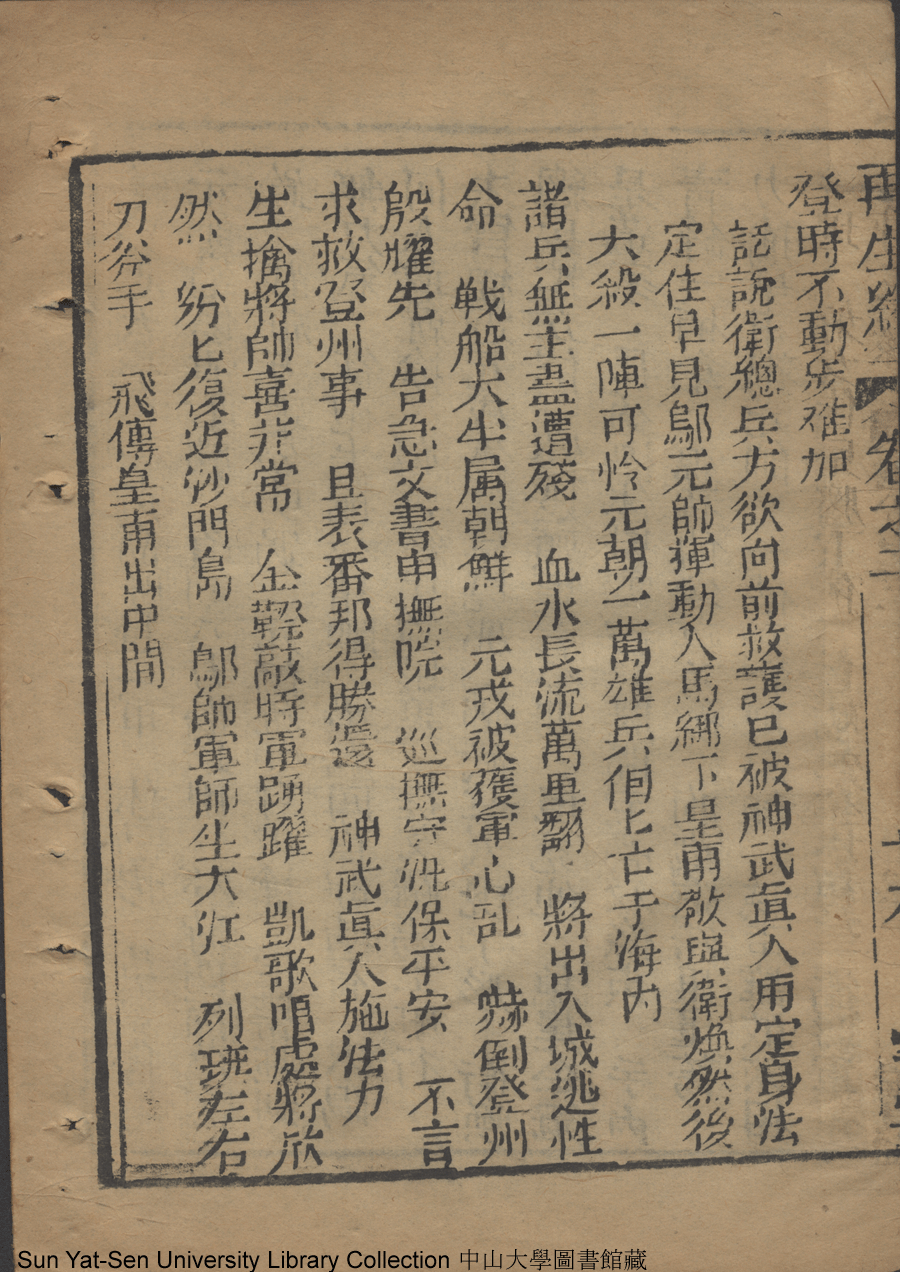 再生緣 卷之二
登時不動步难加
話說衛總兵方欲向前救護已被神武真人用定身法
定住早見鄔元帥揮動人馬綁下皇甫敬與衛煥然後
大殺一陣可怜元朝一萬雄兵俱匕亡于海內
諸兵無主盡遭殘 血水長流萬里翻 將出入城逃性
命 戦船大半属朝鮮 元戎被獲軍心乱 赫倒登州
殷耀先 告急文書申撫院 巡撫守汛保平安 不言
求救登州事 且表番邦得勝還 神武真人施法力
生擒將帥喜非常 金鞭敲時軍踴躍 凱歌唱處將欣
然 紛匕復近沙門島 鄔帥軍師坐大江 列班左右
刀斧手 飛傳皇甫出中間
Sun Yat-Sen University Library Collection 中山大學圖書館藏